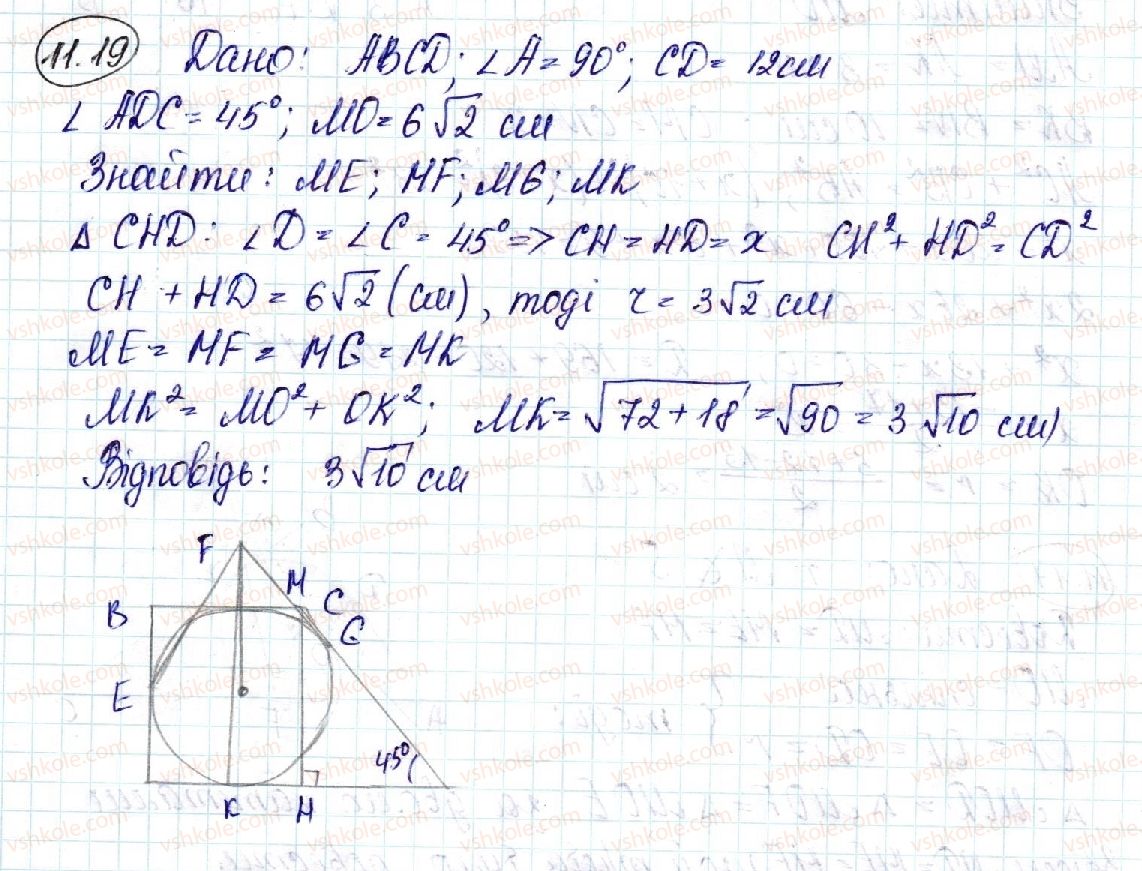 11.19 Дано: ABCD; ∠A = 90°; CD = 12 см
∠ ADC = 45°; MO = 6√2 см
Знайти: ME; MF; MG; MK
Δ CHD: ∠D = ∠C = 45° => CH = HD = x CH² + HD² = CD²
CH + HD = 6√2 (см), тоді r = 3√2 см
ME = MF = MG = MK
MK² = MO² + OK²; MK = √72 + 18 = √90 = 3√10 см)
Відповідь: 3√10 см
F
M
B
C
G
E
45°
K
H
vshkole.com